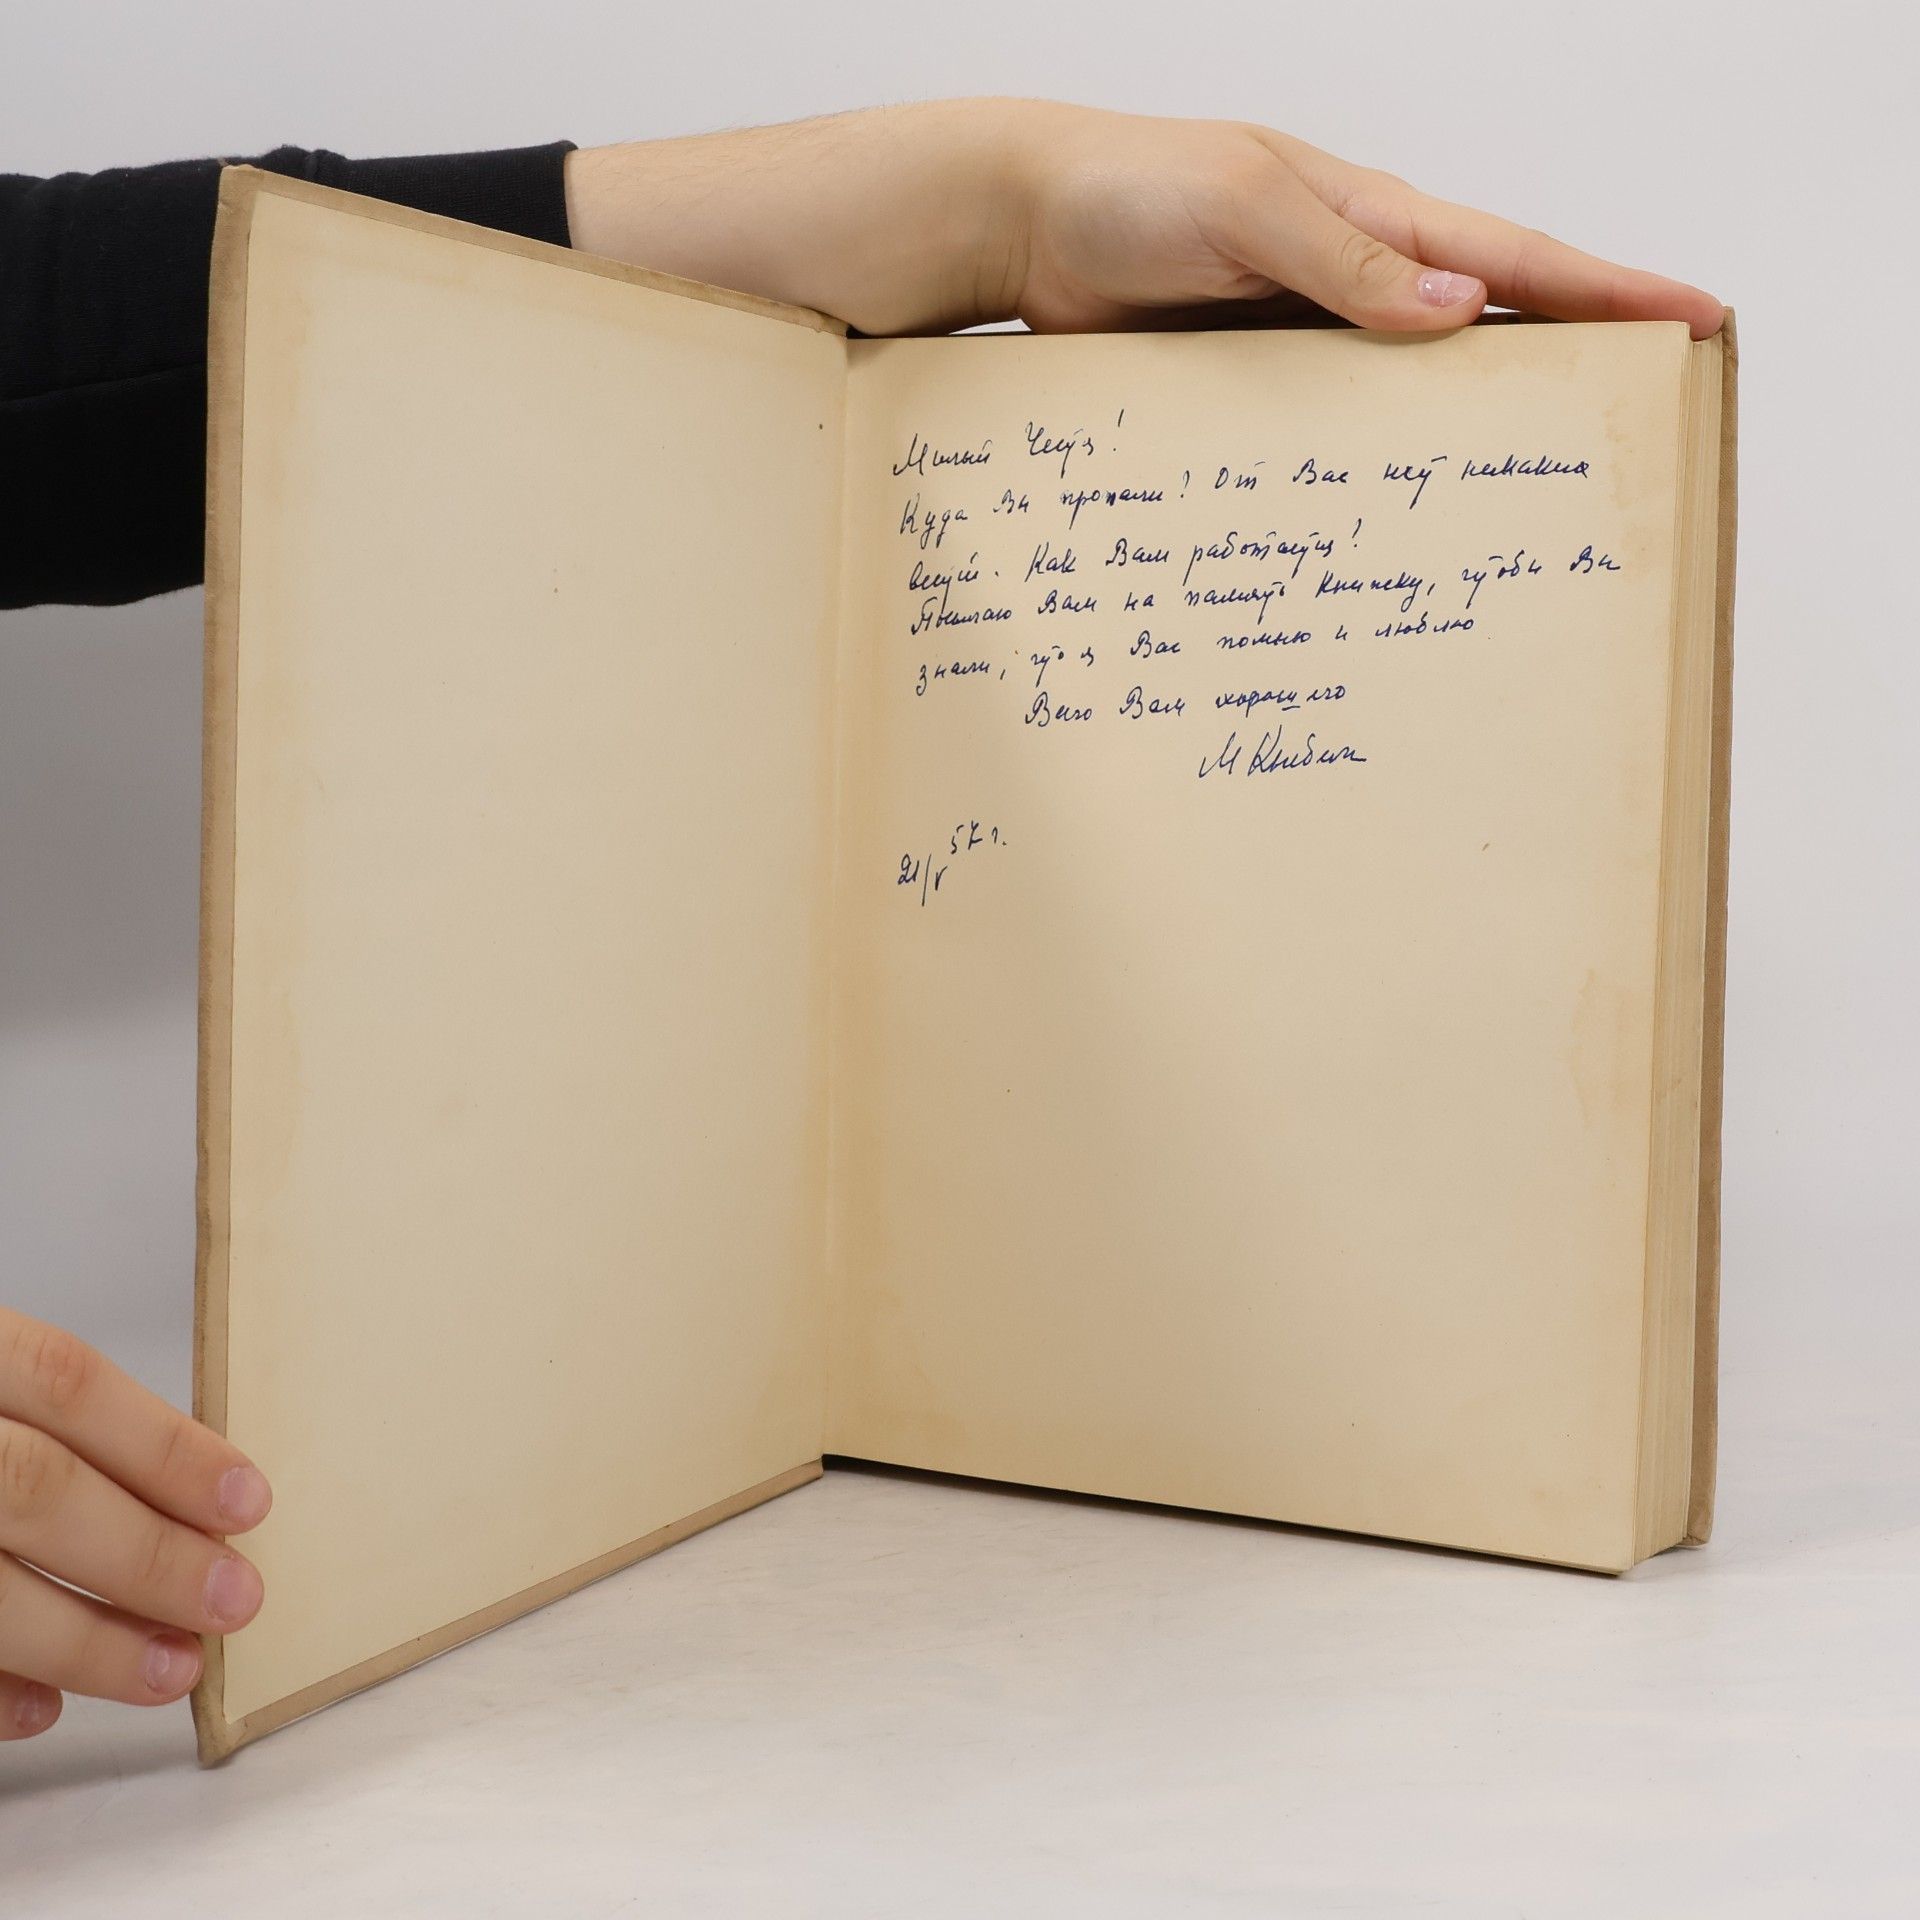 Милый Честя!
Куда Вы пропали? От Вас нет никаких
вестей. Как Вам работается?
Посылаю Вам на память книжку, чтобы Вы
знали, что я Вас помню и люблю
Всего Вам хорошего
М
21/V 57 г.